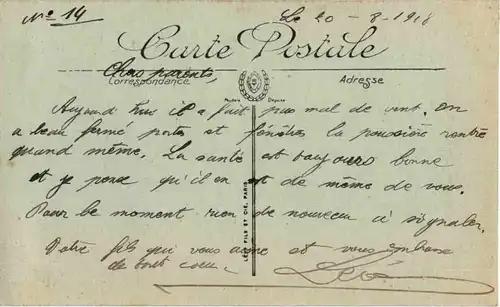 N° 14
Le 20-8-1918
Carte Postale
Chers parents,
Correspondance
Adresse
Aujourd'hui il a fait pas mal de vent. On
a beau fermé portes et fénêtres la poussière rentre
quand même. La santé est toujours bonne
et je pense qu'il en est de même de vous.
Pour le moment rien de nouveau à signaler.
Votre fils qui vous aime et vous embrasse
de tout coeur.
Léo
LÉVY FILS ET CIE, PARIS